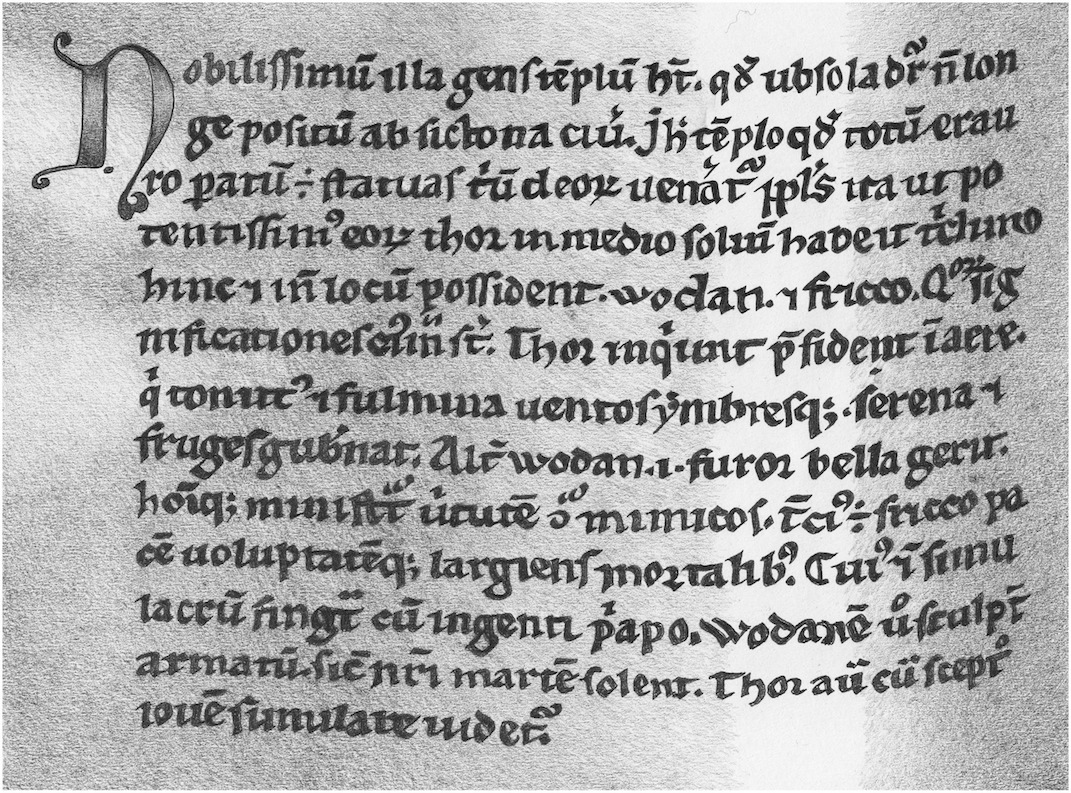 Nobiliſſimū illa genſ tēplū ht̄. qđ ubſola dr̄ n̄ lon
ge poſitū ab ſictona ciu. Jh tēplo qđ totū erau
ro paratū ÷ ſtatuaſ tͥū deoꝝ uenat̄ ppl̄s ita ut po
tentiſſimꝰ eoꝝ thor in medio ſoliū habeat t̄clinio
hinc ⁊ in̄ locū poſſident. wodan. ⁊ fricco. Qoꝝ ſig
nificationeſ cꝰ m̄ ſt̄. Thor inqͥunt p̄ſident ī aere.
qͥ tonitꝰ ⁊ fulmina uentoſ ẏmbreſq; ſerena ⁊
frugeſ gub̄nat. Alt̄ wodan .i. furor bella gerit.
hoīq; miniſt̄t uͥtutē ɔͦ inimicoſ. t̄ciꝰ ÷ fricco pa
cē uoluptatēq; largienſ mortalibꝰ. Cuiꝰ ⁊ī ſimu
lacrū fingt̄ cū ingenti pͥapo. Wodanē uͦ ſculpt̄
armatū. ſic̄ nr̄i martē ſolent. Thor aū cū ſceptͦ
iouē ſimulare uidet̄.